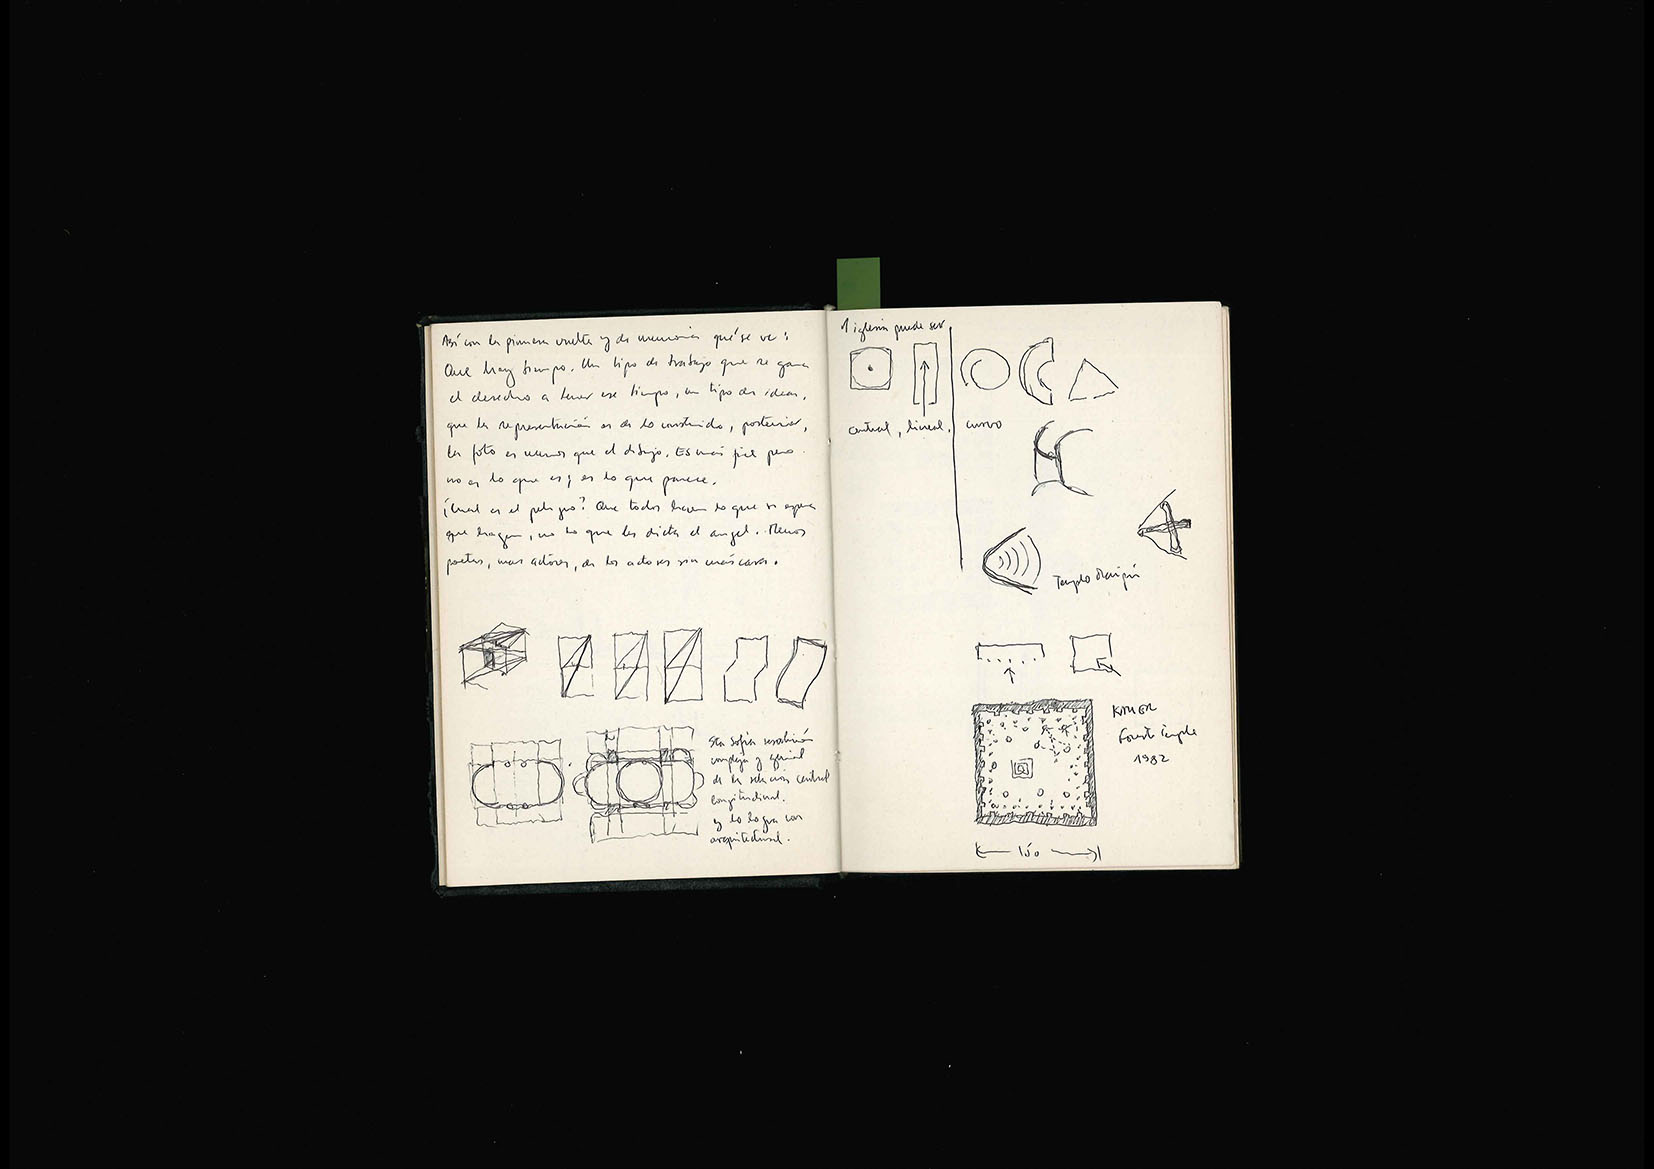 Así con la primera vuelta y de memoria qué se ve:
Que hay tiempo. Un tipo de trabajo que se gana
el derecho a tener ese tiempo, un tipo de ideas,
que la representación es de lo construido, posterior,
la foto es menos que el dibujo. Es más fiel pero
no es lo que es; es lo que parece.
¿Cual es el peligro? Que todos hacen lo que se espera
que hagan, no lo que les dicta el angel. Menos
poetas, mas actores, de los actores sin máscara.
Sta Sofía
compleja y genial
de la relación central
longitudinal.
y lo logra con
arquitectura.
1 iglesia puede ser
central, lineal, curvo
Templo Maipú
Forest temple
1982
150